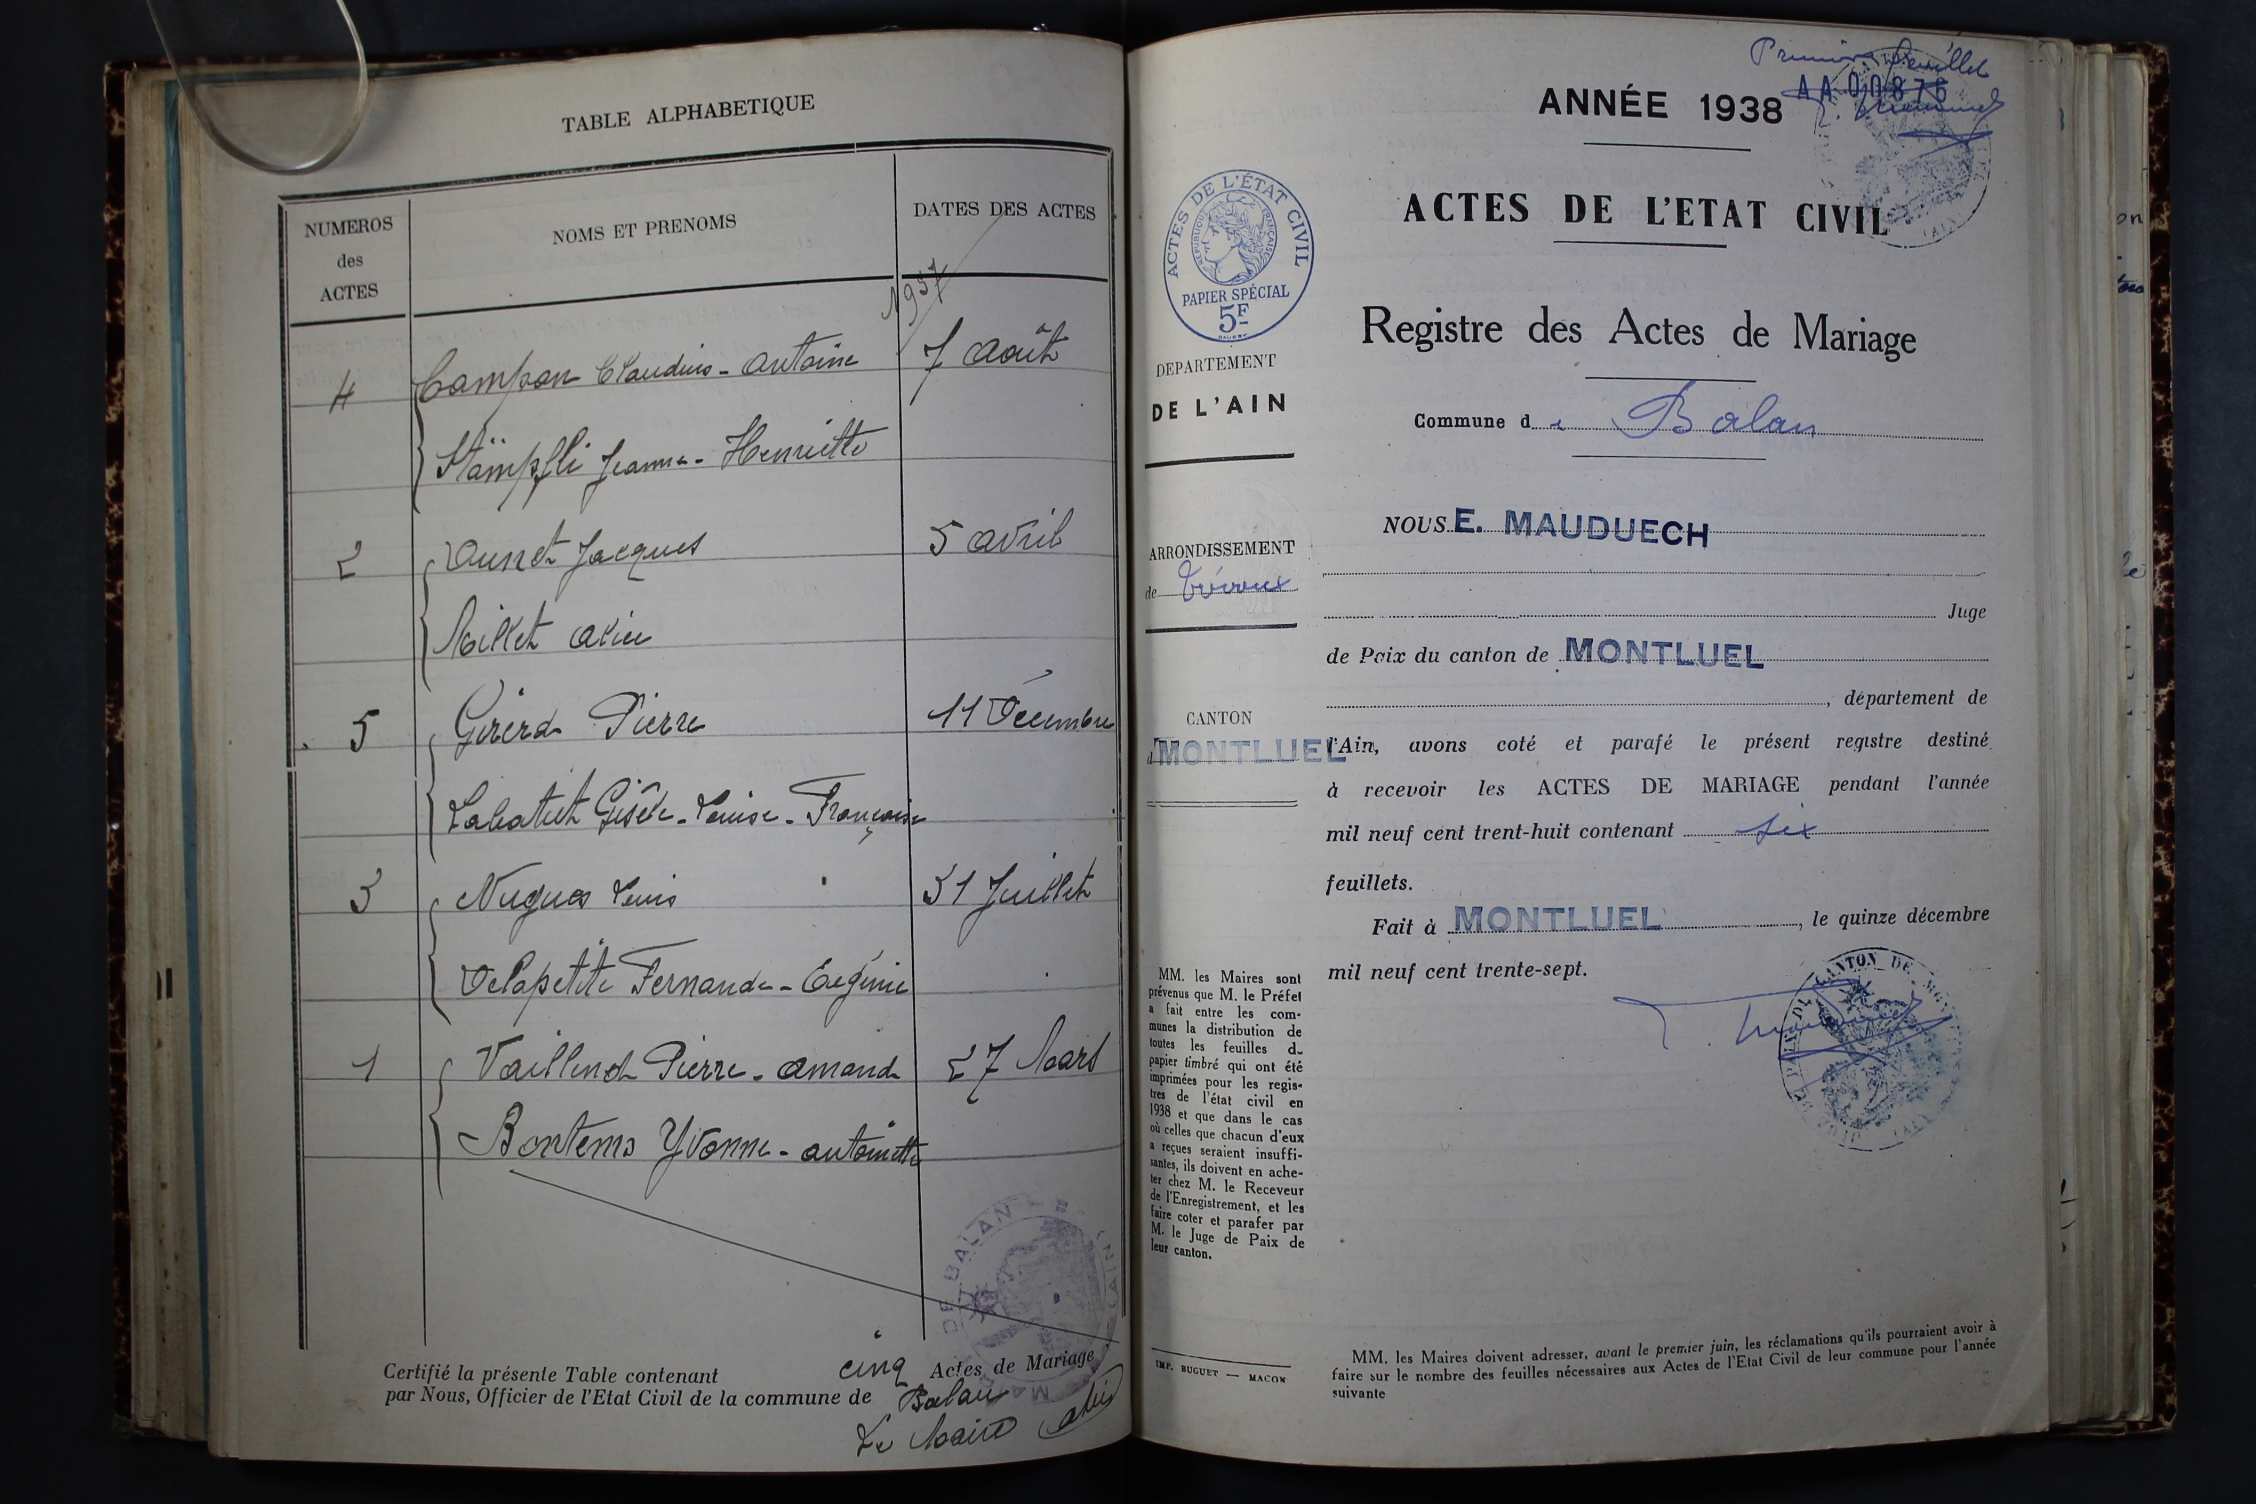 TABLE ALPHABETIQUE
NUMEROS
des
ACTES
NOMS ET PRENOMS
DATES DES ACTES
1937
4 Campan Claudius - Antoine 7 Août
Stämpfli Jeanne - Henriette
2 Dunet Jacques 5 Avril
Millet Alice
5 Girerd Pierre 11 Décembre
Labatut Gisèle - Louise - Françoise
3 Nugues Louis 31 Juillet
Delapetite Fernande - Eugénie
1 Vaillend Pierre - Amand 27 Mars
Bontems Yvonne - Antoinette
Certifié la présente Table contenant cinq Actes de Mariage
par Nous, Officier de l'Etat Civil de la commune de Balan
Le Maire
Premier feuillet
AA00876
ANNÉE 1938
ACTES DE L'ETAT CIVIL
Registre des Actes de Mariage
Commune de Balan
ACTES DE L'ÉTAT CIVIL
RÉPUBLIQUE FRANÇAISE
PAPIER SPÉCIAL
5F
DEPARTEMENT
DE L'AIN
ARRONDISSEMENT
de Trévoux
CANTON
d MONTLUEL
NOUS E. MAUDUECH
Juge
de Paix du canton de MONTLUEL
, département de
l'Ain, avons coté et parafé le présent registre destiné
à recevoir les ACTES DE MARIAGE pendant l'année
mil neuf cent trent-huit contenant six
feuillets.
Fait à MONTLUEL, le quinze décembre
mil neuf cent trente-sept.
MM. les Maires sont
prévenus que M. le Préfet
a fait entre les com-
munes la distribution de
toutes les feuilles du
papier timbré qui ont été
imprimées pour les regis-
tres de l'état civil en
1938 et que dans le cas
où celles que chacun d'eux
a reçues seraient insuffi-
santes, ils doivent en ache-
ter chez M. le Receveur
de l'Enregistrement, et les
faire coter et parafer par
M. le Juge de Paix de
leur canton.
IMP. BUGUET — MACON
MM. les Maires doivent adresser, avant le premier juin, les réclamations qu'ils pourraient avoir à
faire sur le nombre des feuilles nécessaires aux Actes de l'Etat Civil de leur commune pour l'année
suivante